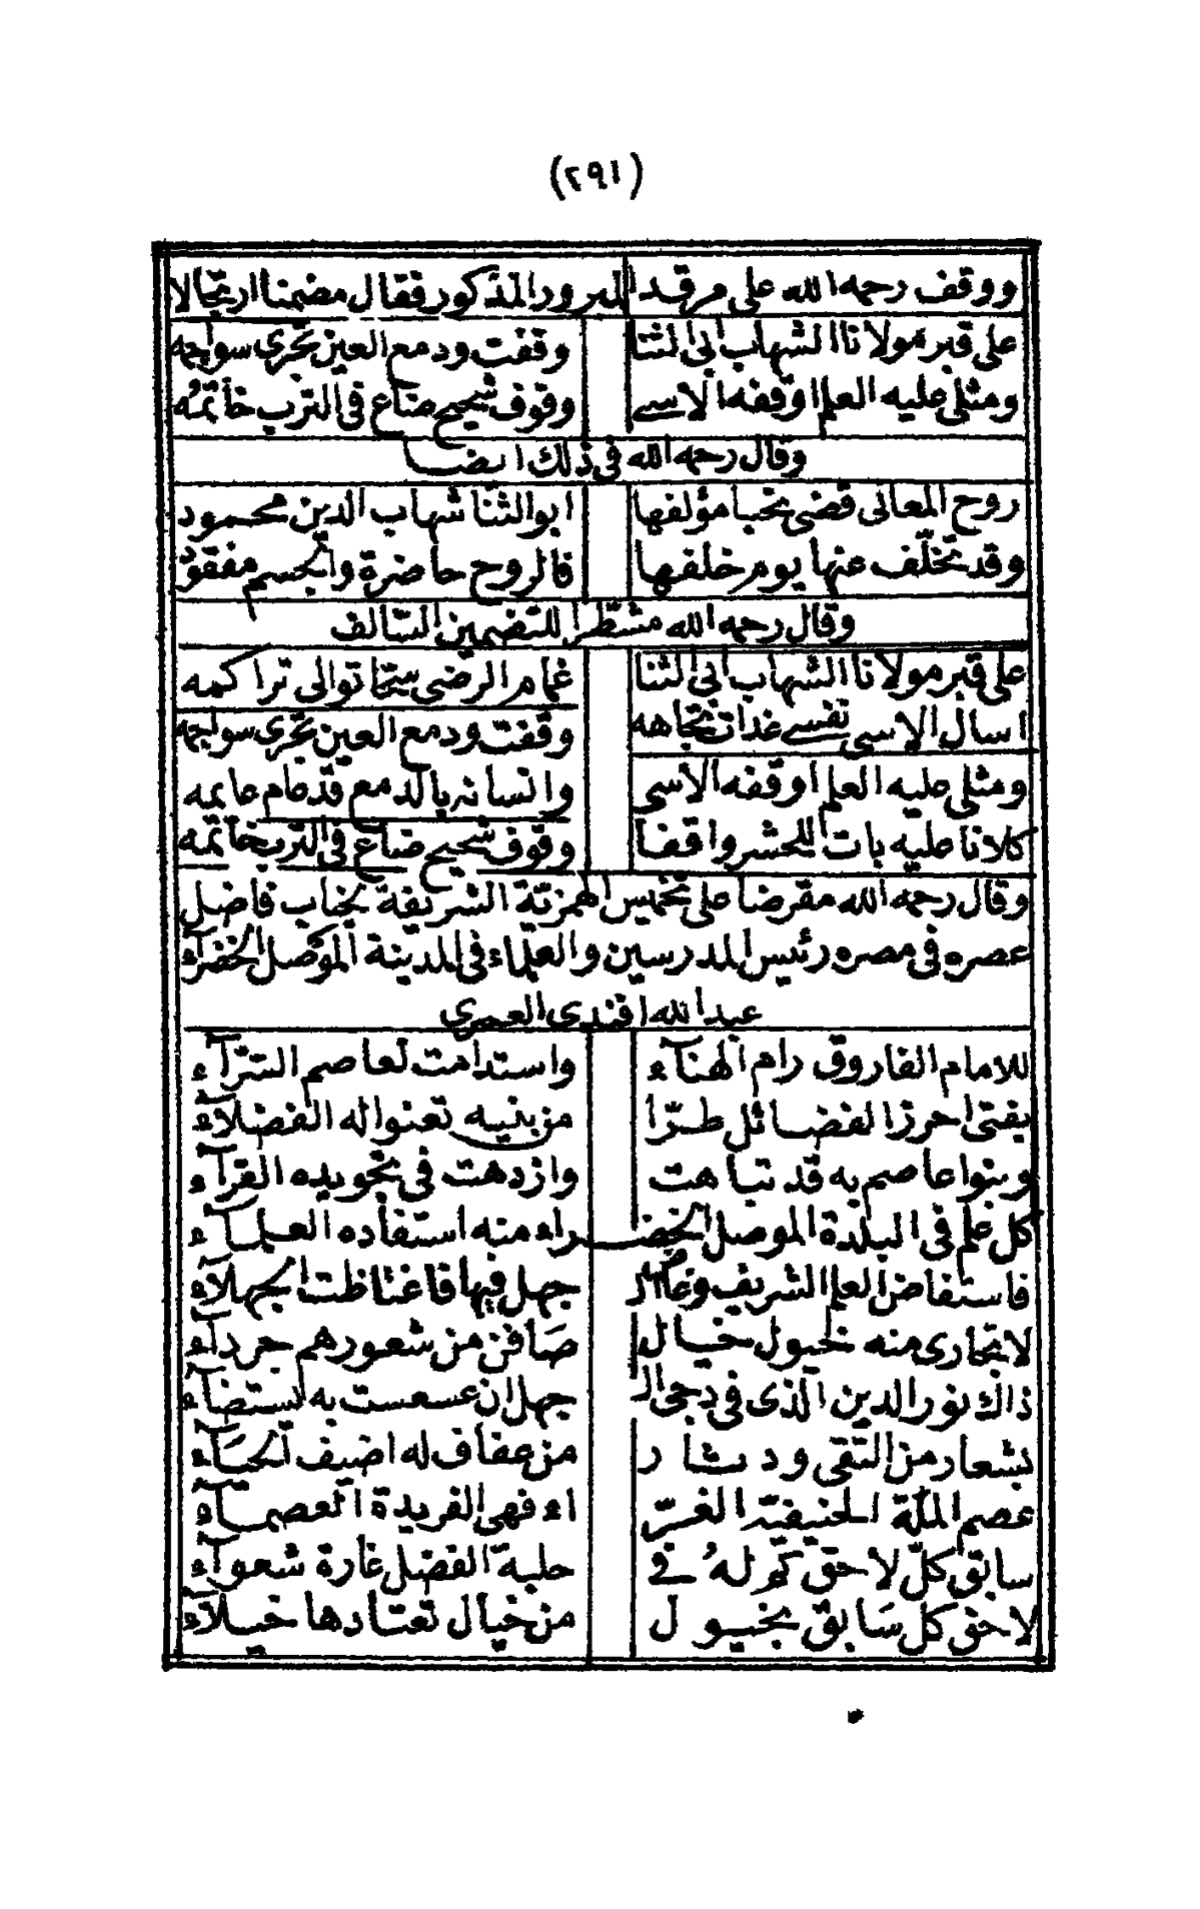 (٢٩١)
ووقف رحمه الله على مرقد المبرور المذكور فقال مضمنا ارتجالا
على قبر مولانا الشهاب ابى الثنا وقفت ودمع العين تجرى سواجمه
ومثلى عليه العلم اوقفه الاسے وقوف شحيح ضاع فى الترب خاتمُه
وقال رحمه الله فى ذلك ايضا
روح المعانى قضى نحبا مؤلفها ابو الثنا شهاب الدين محمود
وقد تخلّف عنها يوم خلفها فالروح حاضرة والجسم مفقود
وقال رحمه الله مشطّرا للتضمين السّالف
على قبر مولانا الشهاب ابى الثنا غمام الرضى سحّا توالى تراكمه
اسال الاسى نفسے غداة تجاهه وقفت ودمع العين تجرى سواجمه
ومثلى عليه العلم اوقفه الاسى وانسانه بالدمع قد عام عايمه
كلانا عليه بات للحشر واقفا وقوف شحيح ضاع فى الترب خاتمه
وقال رحمه الله مقرضا على تخميس الهمزيّة الشريفة لجناب فاضل
عصره فى مصره رئيس المدرسين والعلماء فى المدينة الموصل الخضرآء
عبد الله افندى العمرى
للامام الفاروق رام الهنآء واستدامت لعاصم السّرّآء
بفتى احرز الفضائل طرّا من بنيه تعنوا له الفضلآء
وبنوا عاصم به قد تباهت وازدهت فى تجويده القرآء
كل علم فى البلدة الموصل الخضراء منه استفاده العلمآء
فاستفاض العلم الشريف وغاض الجهل فيها فاغتاظت الجهلآء
لا تجارى منه خيول خيال صَافن من شعورهم جردآء
ذاك نور الدين الذى فى دجى الجهل ان عسعست به يستضآء
بشعار من التّقى ودثار من عفاف له اضيف الحيَآء
عصم الملّة الحنيفيّة الغرّاء فهى الفريدة العصمآء
سابق كلّ لاحق كم لهُ فے حلبة الفضل غارة شعوآء
لاحق كل سَابق بخيول من خيال تعتادها خيلآء